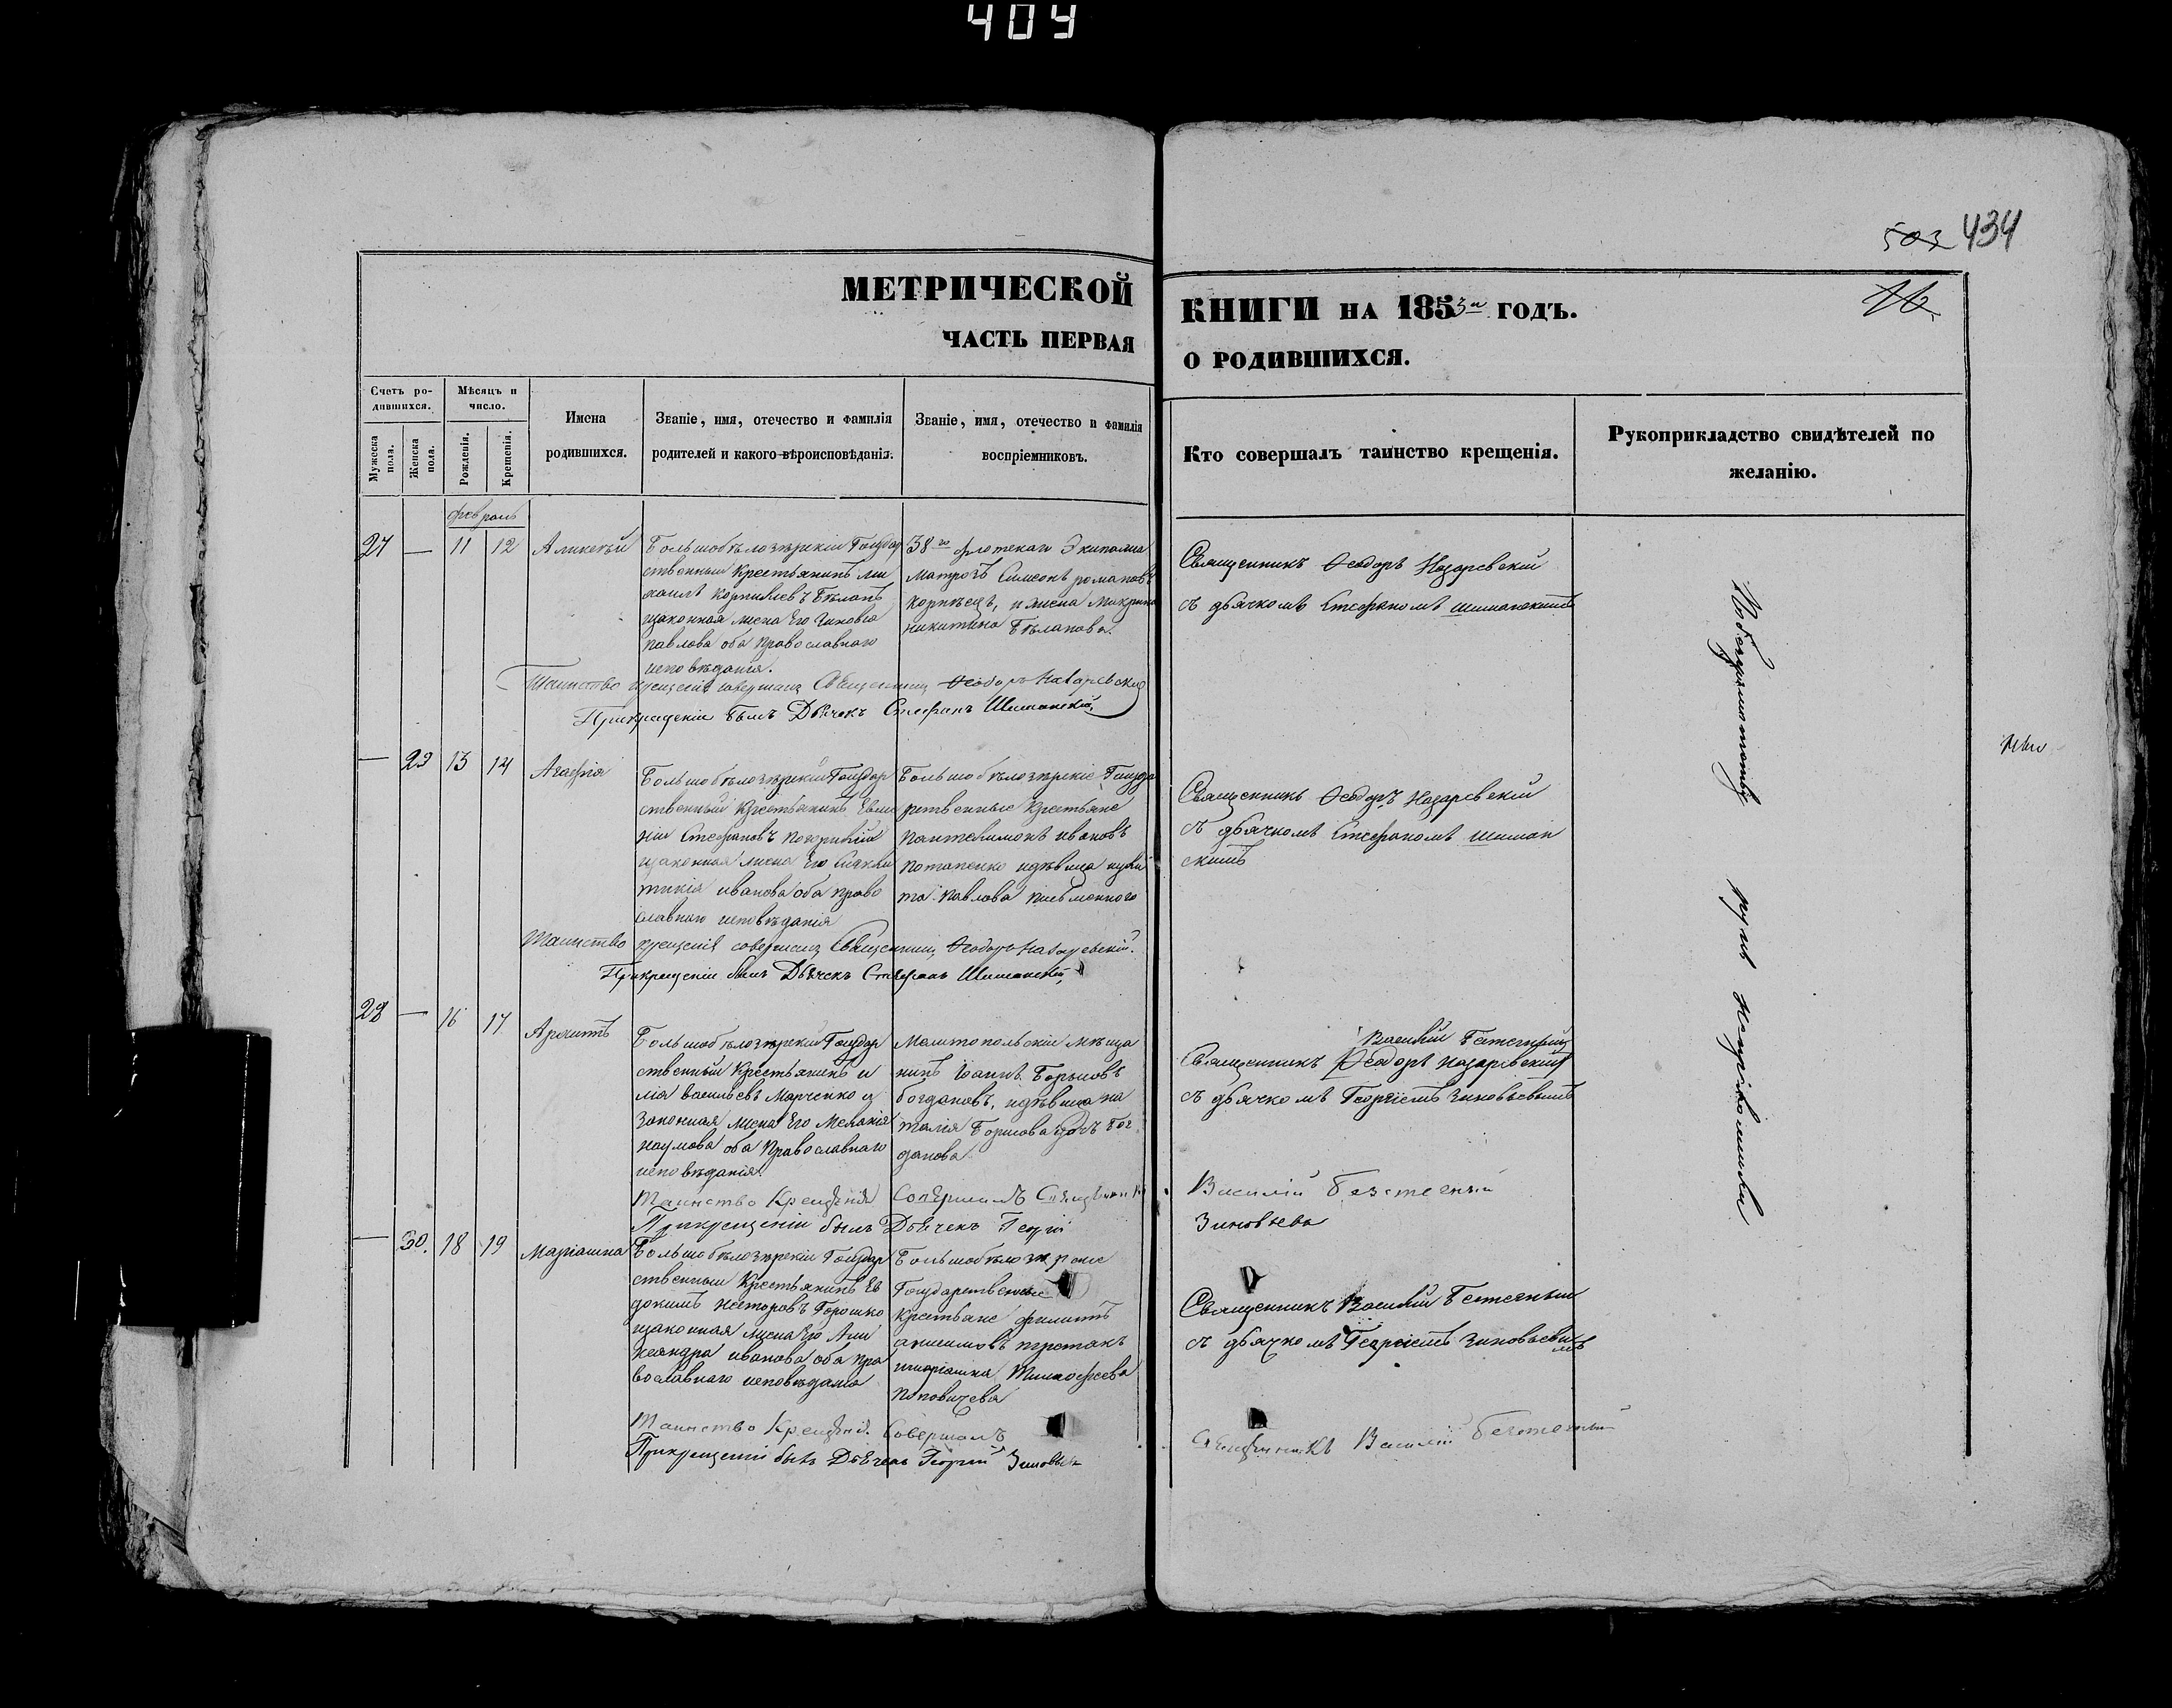 409
503 434
МЕТРИЧЕСКОЙ
ЧАСТЬ ПЕРВАЯ
КНИГИ НА 1853й ГОДЪ.
О РОДИВШИХСЯ.
Счетъ ро-
дившихся.
Мужеска пола.
Женска пола.
Мѣсяцъ и
число.
Рожденія.
Крещенія.
Имена
родившихся.
Званіе, имя, отечество и фамилія
родителей и какого вѣроисповѣданія.
Званіе, имя, отечество и фамилія
воспріемниковъ.
Кто совершалъ таинство крещенія.
Рукоприкладство свидѣтелей по
желанію.
27 — 11 12
Большобѣлозѣрскій Государ
ственный крестьянинъ Ми
хаилъ Корнилевъ Бѣланъ
изаконная жена Его
павлова оба православнаго
исповѣданія.
38го флотскаго Экипажа
Матрозъ Симеонъ романовъ
и жена
никитина Бѣланова.
Священникъ Ѳеодоръ Назаревскій
съ дьячкомъ Стефаномъ Шиманскимъ
Таинство крещенія совершалъ Священникъ Ѳеодоръ Назаревскій
При крещеніи былъ Дьячекъ Стефанъ Шиманскій,
— 29 13 14 Агафія
Большобѣлозѣрскій Государ
ственный крестьянинъ Евме
ній Стефановъ
изаконная жена Его Синкли
тикія иванова оба право
славнаго исповѣданія
Большобѣлозѣрскіе Государ
ственные крестьяне
Пантелимонъ ивановъ
Потапенко идѣвица
павлова Письменного
Священникъ Ѳеодоръ Назаревскій
съ дьячкомъ Стефаномъ Шиман
скимъ
Таинство крещенія совершалъ Священникъ Ѳеодоръ Назаревскій.
При крещеніи былъ Дьячекъ Стефанъ Шиманскій,
28 — 16 17
Большобѣлозѣрскій Государ
ственный крестьянинъ и
лія васильевъ Марченко и
законная жена Его Меланія
наумова оба Православнаго
исповѣданія
Мелитопольскій мѣща
нинъ Іоаннъ Борисовъ
богдановъ, идѣвица на
талія Борисова Бог
данова
Василій Безтечный
Священникъ Ѳеодоръ Назаревскій
съ дьячкомъ Георгіемъ Зиновьевымъ
Таинство Крещенія Совершилъ Священникъ Василій Безтечный
При крещеніи былъ Дьячекъ Георгій Зиновьевъ
— 30. 18 19 Маріамна
Большобѣлозѣрскій Государ
ственный крестьянинъ Ев
докимъ несторовъ Горошко
изаконная жена Его Але
ксандра иванова оба пра
вославнаго исповѣданія
Большобѣлозѣрскіе
Государственные
крестьяне филиппъ
анисимовъ
имаріамна Тимофеева
Поповичева
Священникъ Василій Безтечный
съ дьячкомъ Георгіемъ Зиновьевымъ
Таинство Крещенія Совершалъ Священникъ Василій Безтечный
При крещеніи былъ Дьячекъ Георгій Зиновьевъ